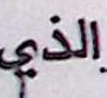 الذي